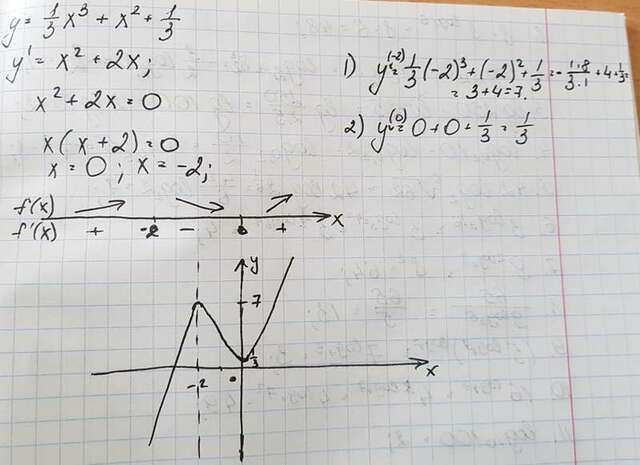 y = 1/3 x³ + x² + 1/3
y' = x² + 2x;
x² + 2x = 0
x(x+2) = 0
x = 0; x = -2;
1) y(-2) = 1/3 (-2)³ + (-2)² + 1/3 = - 1·8/3·1 + 4 + 1/3 =
= 3 + 4 = 7.
2) y(0) = 0 + 0 + 1/3 = 1/3
f(x)
f'(x) + -2 - 0 + x
y
7
1/3
-2 0 x